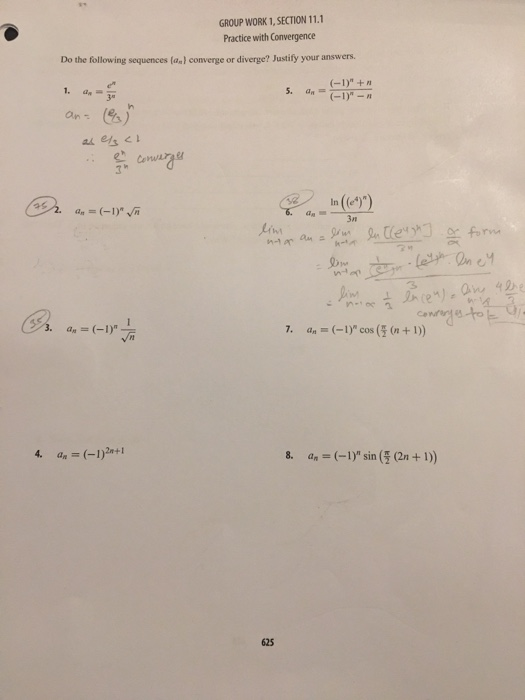 GROUP WORK 1, SECTION 11.1
Practice with Convergence
Do the following sequences {aₙ} converge or diverge? Justify your answers.
1. aₙ = eⁿ/3ⁿ
an = (e/3)ⁿ
as e/3 < 1
∴ eⁿ/3ⁿ converges
2. aₙ = (−1)ⁿ √n
35 3. aₙ = (−1)ⁿ 1/√n
4. aₙ = (−1)²ⁿ⁺¹
5. aₙ = ((−1)ⁿ + n)/((−1)ⁿ − n)
6. aₙ = ln((e⁴)ⁿ)/3n
lim n→∞ an = lim n→∞ ln[(e⁴)ⁿ] ∞/∞ form
= lim n→∞
= lim n→∞
converges to
7. aₙ = (−1)ⁿ cos (π/2 (n + 1))
8. aₙ = (−1)ⁿ sin (π/2 (2n + 1))
625